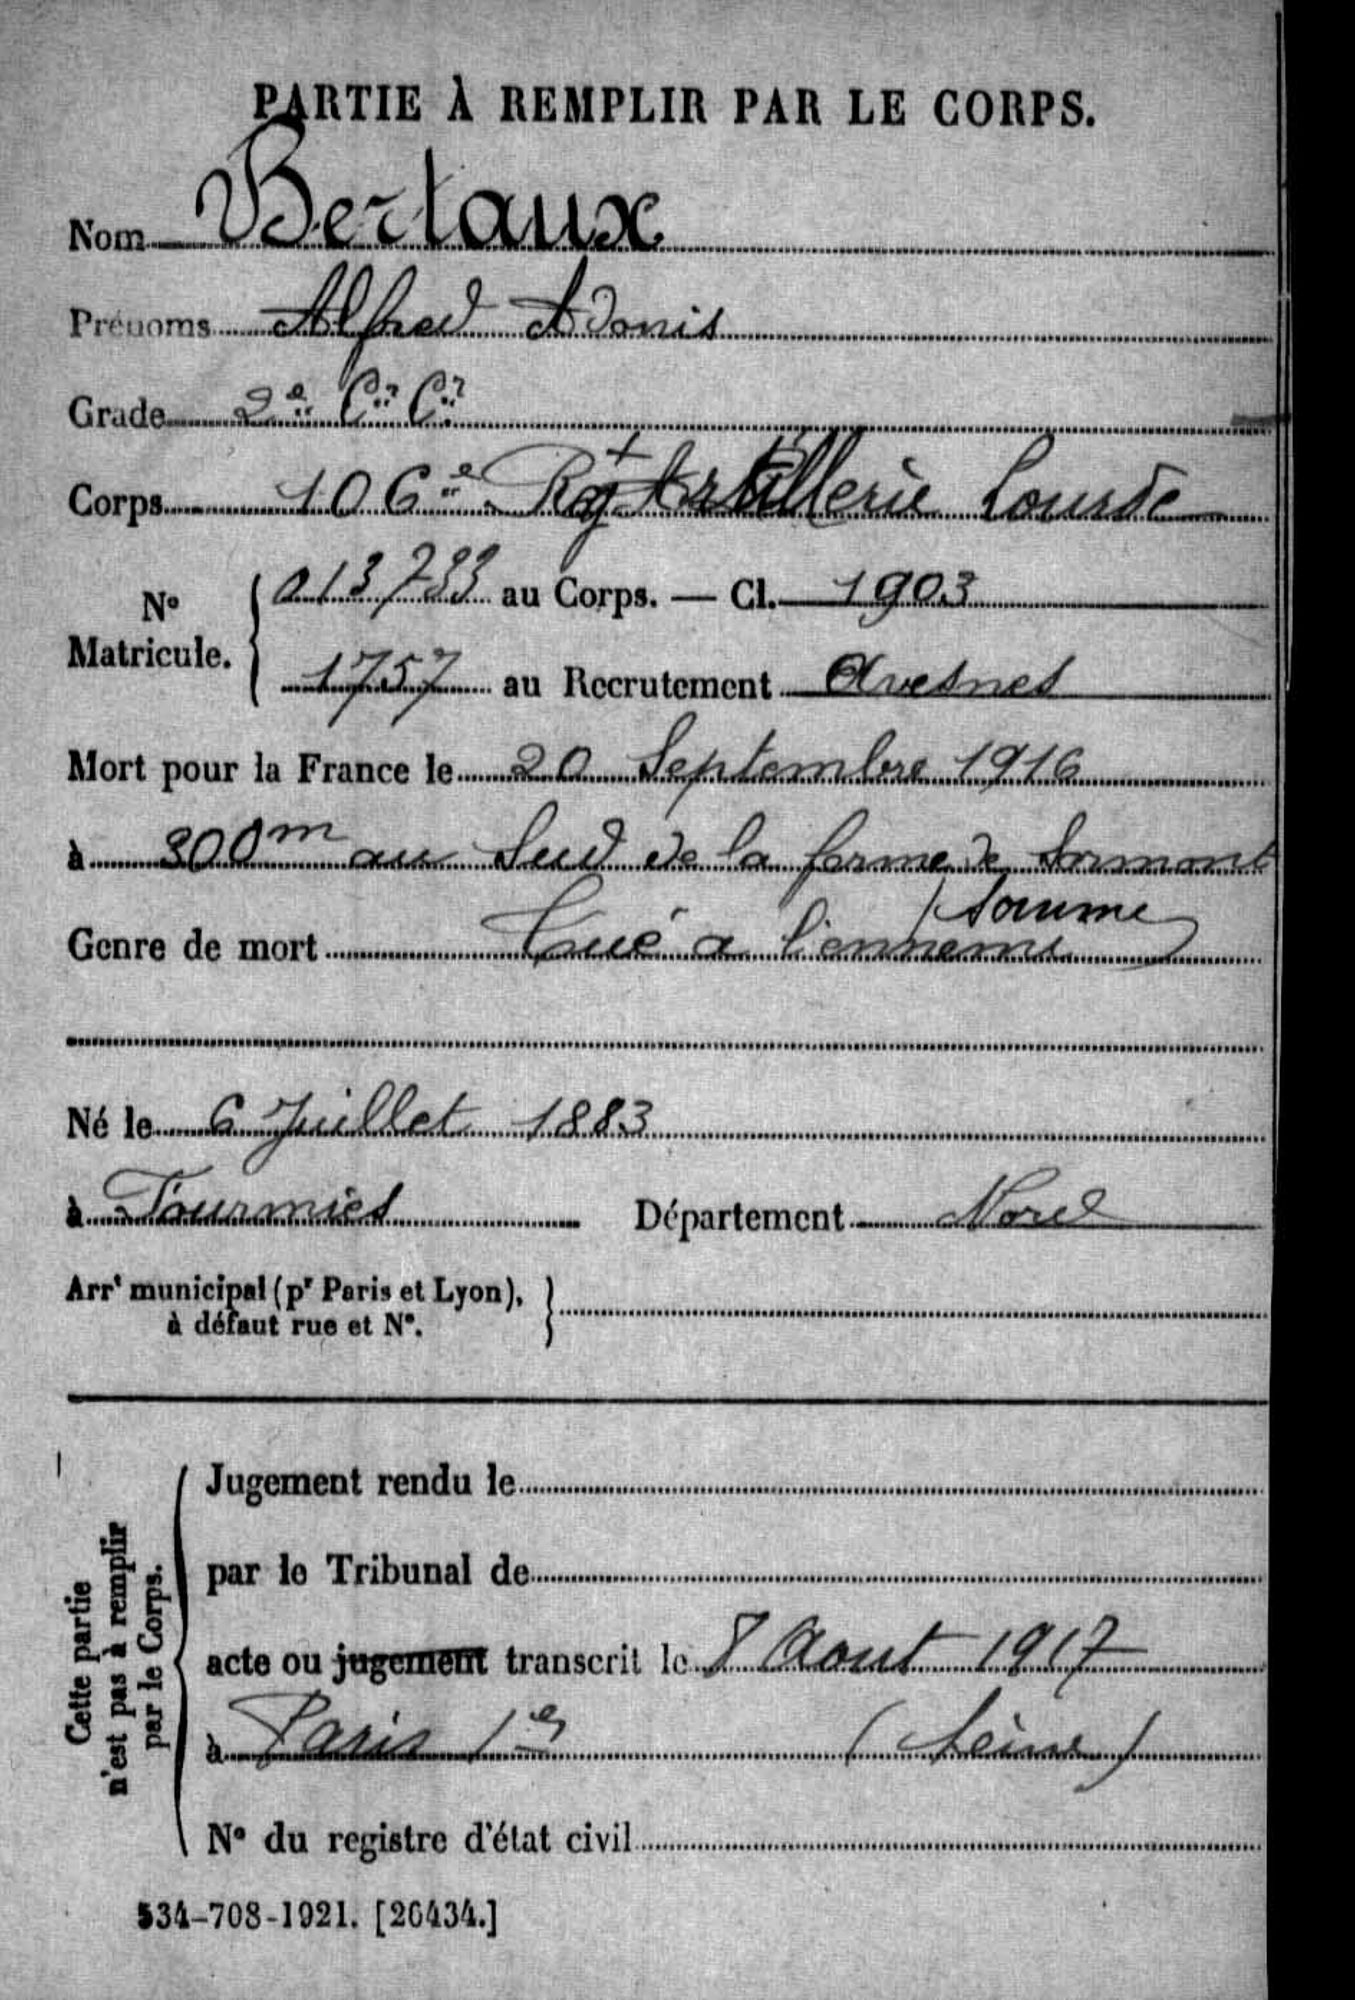 PARTIE À REMPLIR PAR LE CORPS.
Nom Bertaux
Prénoms Alfred Adonis
Grade 2e Cr Cr
Corps 106e Regt Artillerie Lourde
No Matricule. { 013733 au Corps. — Cl. 1903
1757 au Recrutement Avesnes
Mort pour la France le 20 Septembre 1916
à 300m au Sud de la ferme de Sormont
(Somme)
Genre de mort Tué a l'ennemi
Né le 6 Juillet 1883
à Fourmies Département Nord
Arrt municipal (pr Paris et Lyon),
à défaut rue et No.
Cette partie
n'est pas à remplir
par le Corps.
Jugement rendu le
par le Tribunal de
acte ou jugement transcrit le 8 Aout 1917
à Paris 1er (Seine)
No du registre d'état civil
534-708-1921. [26434.]